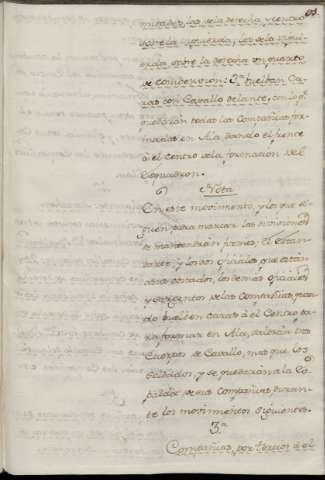 mitades, las de la derecha, y centro
sobre la izquierda, los de la izqui-
erda sobre la derecha en quarto
de combersion: 2.ª bueltan Ca-
ras con Cavallo delante, con lo q.ᵉ
quedarán todas las Compañias for-
madas en Ala, dando el frente
á el centro de la formacion del
Esquadron.
Nota
En este movimiento, y los que si-
guen para marcar las
se mantendrán firmes, El Estan-
darte, y los dos oficiales que están
á sus costados, los demás oficiales
y sargentos de las Compañias, quan-
do buelben caras á el Centro pa-
ra formar en Ala, saldrán dos
Cuerpos de Cavallo, mas que los
Soldados, y se quedarán á la Es-
palda de sus Compañias, duran-
te los movimientos siguientes.
3.ª
Compañias por tercios á el